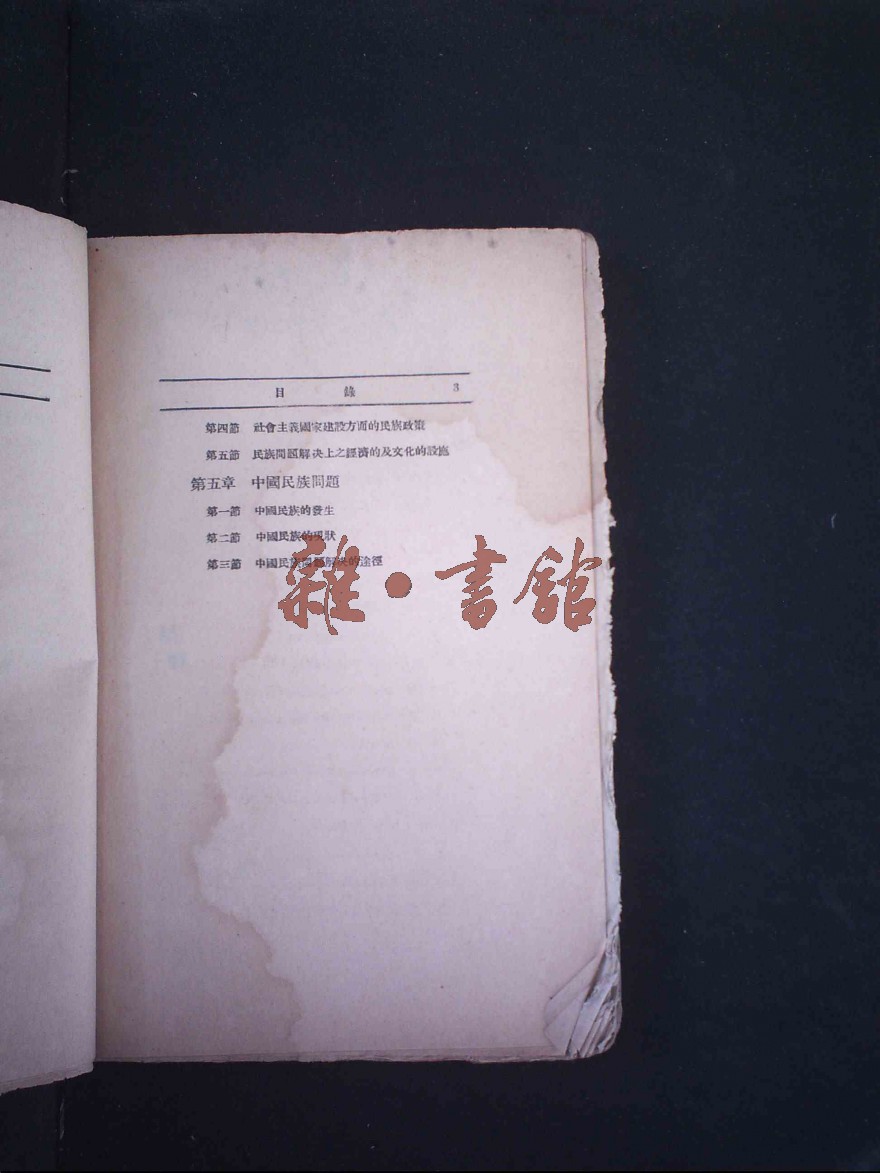 目 錄 3
第四節 社會主義國家建設方面的民族政策
第五節 民族問題解決上之經濟的及文化的設施
第五章 中國民族問題
第一節 中國民族的發生
第二節 中國民族的現狀
第三節 中國民族問題解決的途徑
雜·書館